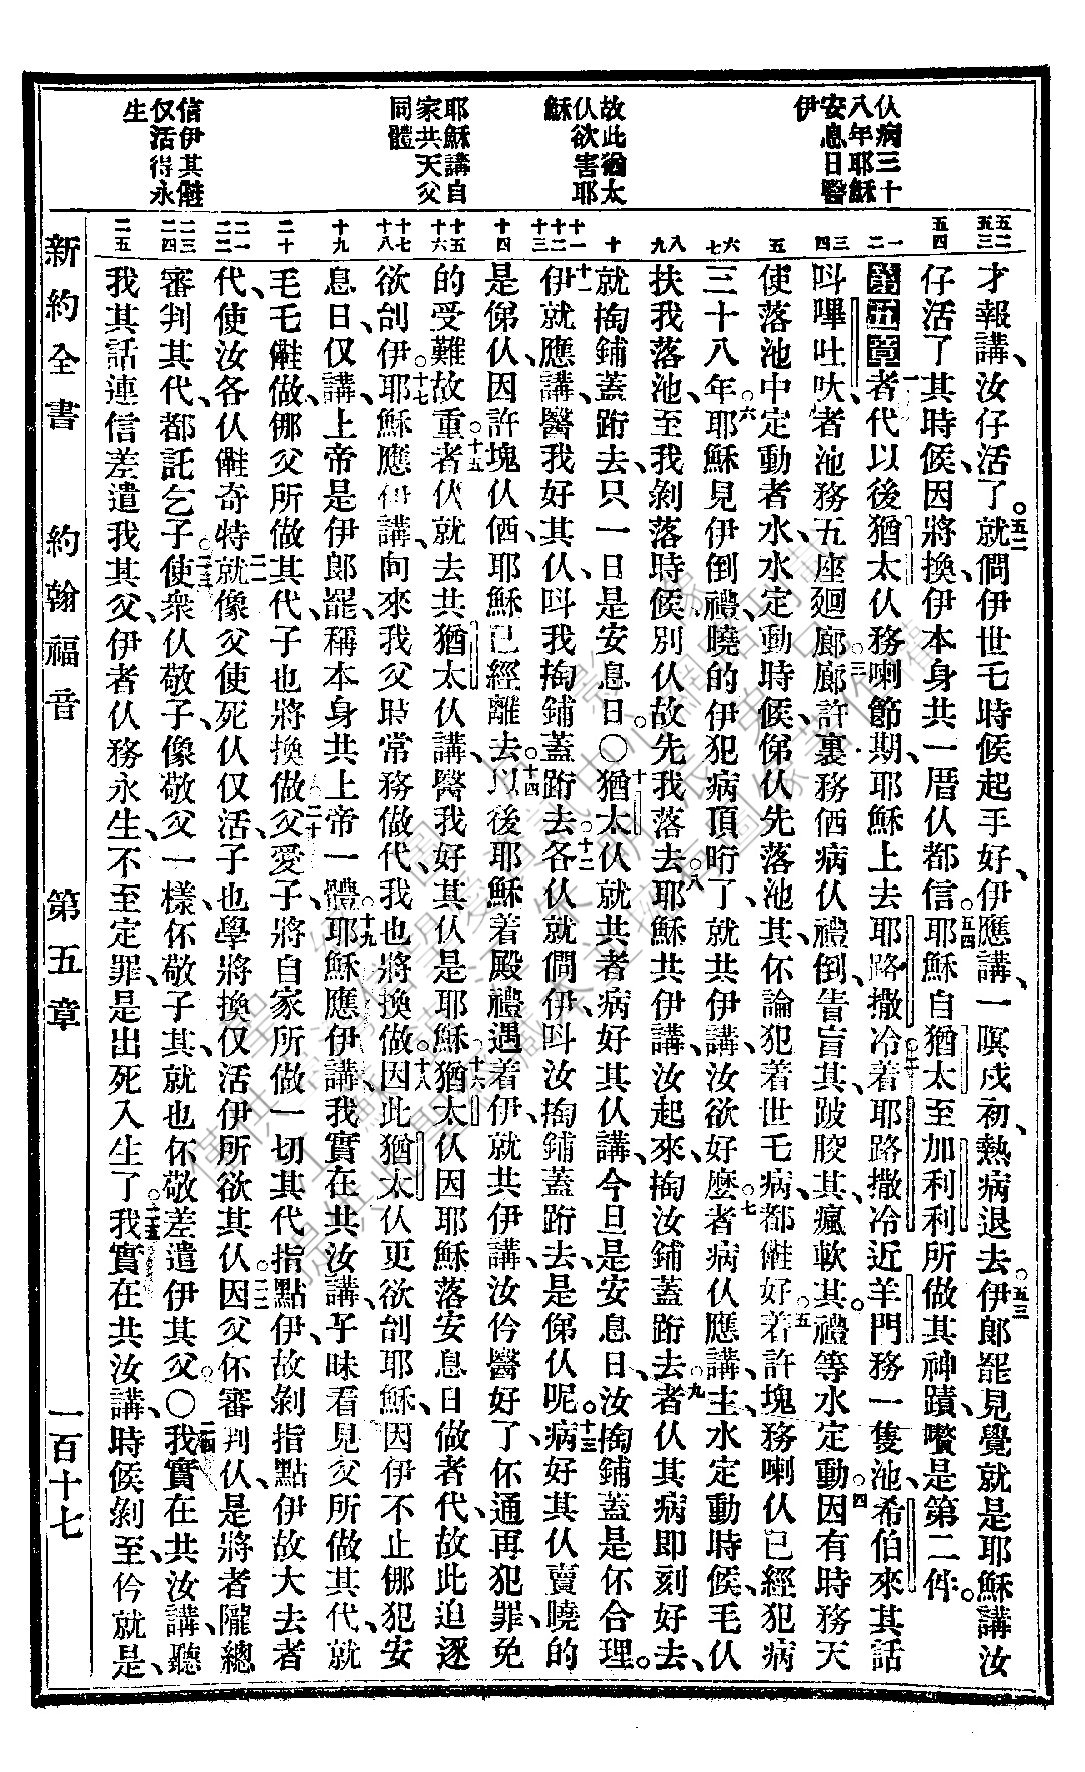 仈病三十
八年耶穌
安息日醫
伊
故此猶太
仈欲害耶
穌
耶穌講自
家共天父
同體
信伊其儺
仅活得永
生
才報講、汝仔活了。五二就僩伊世乇時候起手好、伊應講、一暝戍初、熱病退去。五三伊郎罷見覺就是耶穌講汝
仔活了其時候、因將換伊本身共一厝仈都信。五四耶穌自猶太至加利利所做其神蹟、嚽是第二件。
第五章一者代以後猶太仈務喇節期、耶穌上去耶路撒冷。二着耶路撒冷近羊門務一隻池、希伯來其話
呌嗶吐㕭、者池務五座廻廊。三廊許裏務価病仈禮倒、眚盲其、跛胶其、瘋軟其。禮等水定動。四因有時務天
使落池中定動者水、水定動時候、俤仈先落池其、伓論犯着世乇病、都儺好。五着許塊務喇仈已經犯病
三十八年。六耶穌見伊倒禮、曉的伊犯病頂𠯋了、就共伊講、汝欲好麼。七者病仈應講、主、水定動時候、毛仈
扶我落池、至我剝落時候、別仈故先我落去。八耶穌共伊講、汝起來、掏汝鋪蓋跡去。九者仈其病即刻好去、
就掏鋪蓋跡去、只一日是安息日。○十猶太仈就共者病好其仈講、今旦是安息日、汝掏鋪蓋是伓合理。
十一伊就應講、醫我好其仈、呌我掏鋪蓋跡去。十二各仈就僩伊、呌汝掏鋪蓋跡去、是俤仈呢。十三病好其仈賣曉的
是俤仈、因許塊仈価、耶穌已經離去。十四以後耶穌着殿禮遇着伊、就共伊講、汝伶醫好了、伓通再犯罪、免
的受難故重。十五者仈就去共猶太仈講、醫我好其仈是耶穌。十六猶太仈因耶穌落安息日做者代、故此迫逐
欲刣伊。十七耶穌應伊講、向來我父時常務做代、我也將換做。十八因此猶太仈更欲刣耶穌、因伊不止㑚犯安
息日、仅講上帝是伊郎罷、稱本身共上帝一體。十九耶穌應伊講、我實在共汝講、子昧看見父所做其代、就
毛乇儺做、㑚父所做其代、子也將換做。二十父愛子、將自家所做一切其代指點伊、故剝指點伊故大去者
代、使汝各仈儺奇特。二一就像父使死仈仅活、子也學將換仅活伊所欲其仈。二二因父伓審判仈、是將者隴總
審判其代、都託乞子。二三使衆仈敬子、像敬父一樣、伓敬子其、就也伓敬差遣伊其父。○二四我實在共汝講、聽
我其話連信差遣我其父、伊者仈務永生、不至定罪、是出死入生了。二五我實在共汝講、時候剝至、伶就是、
新約全書
約翰福音
第五章
一百十七